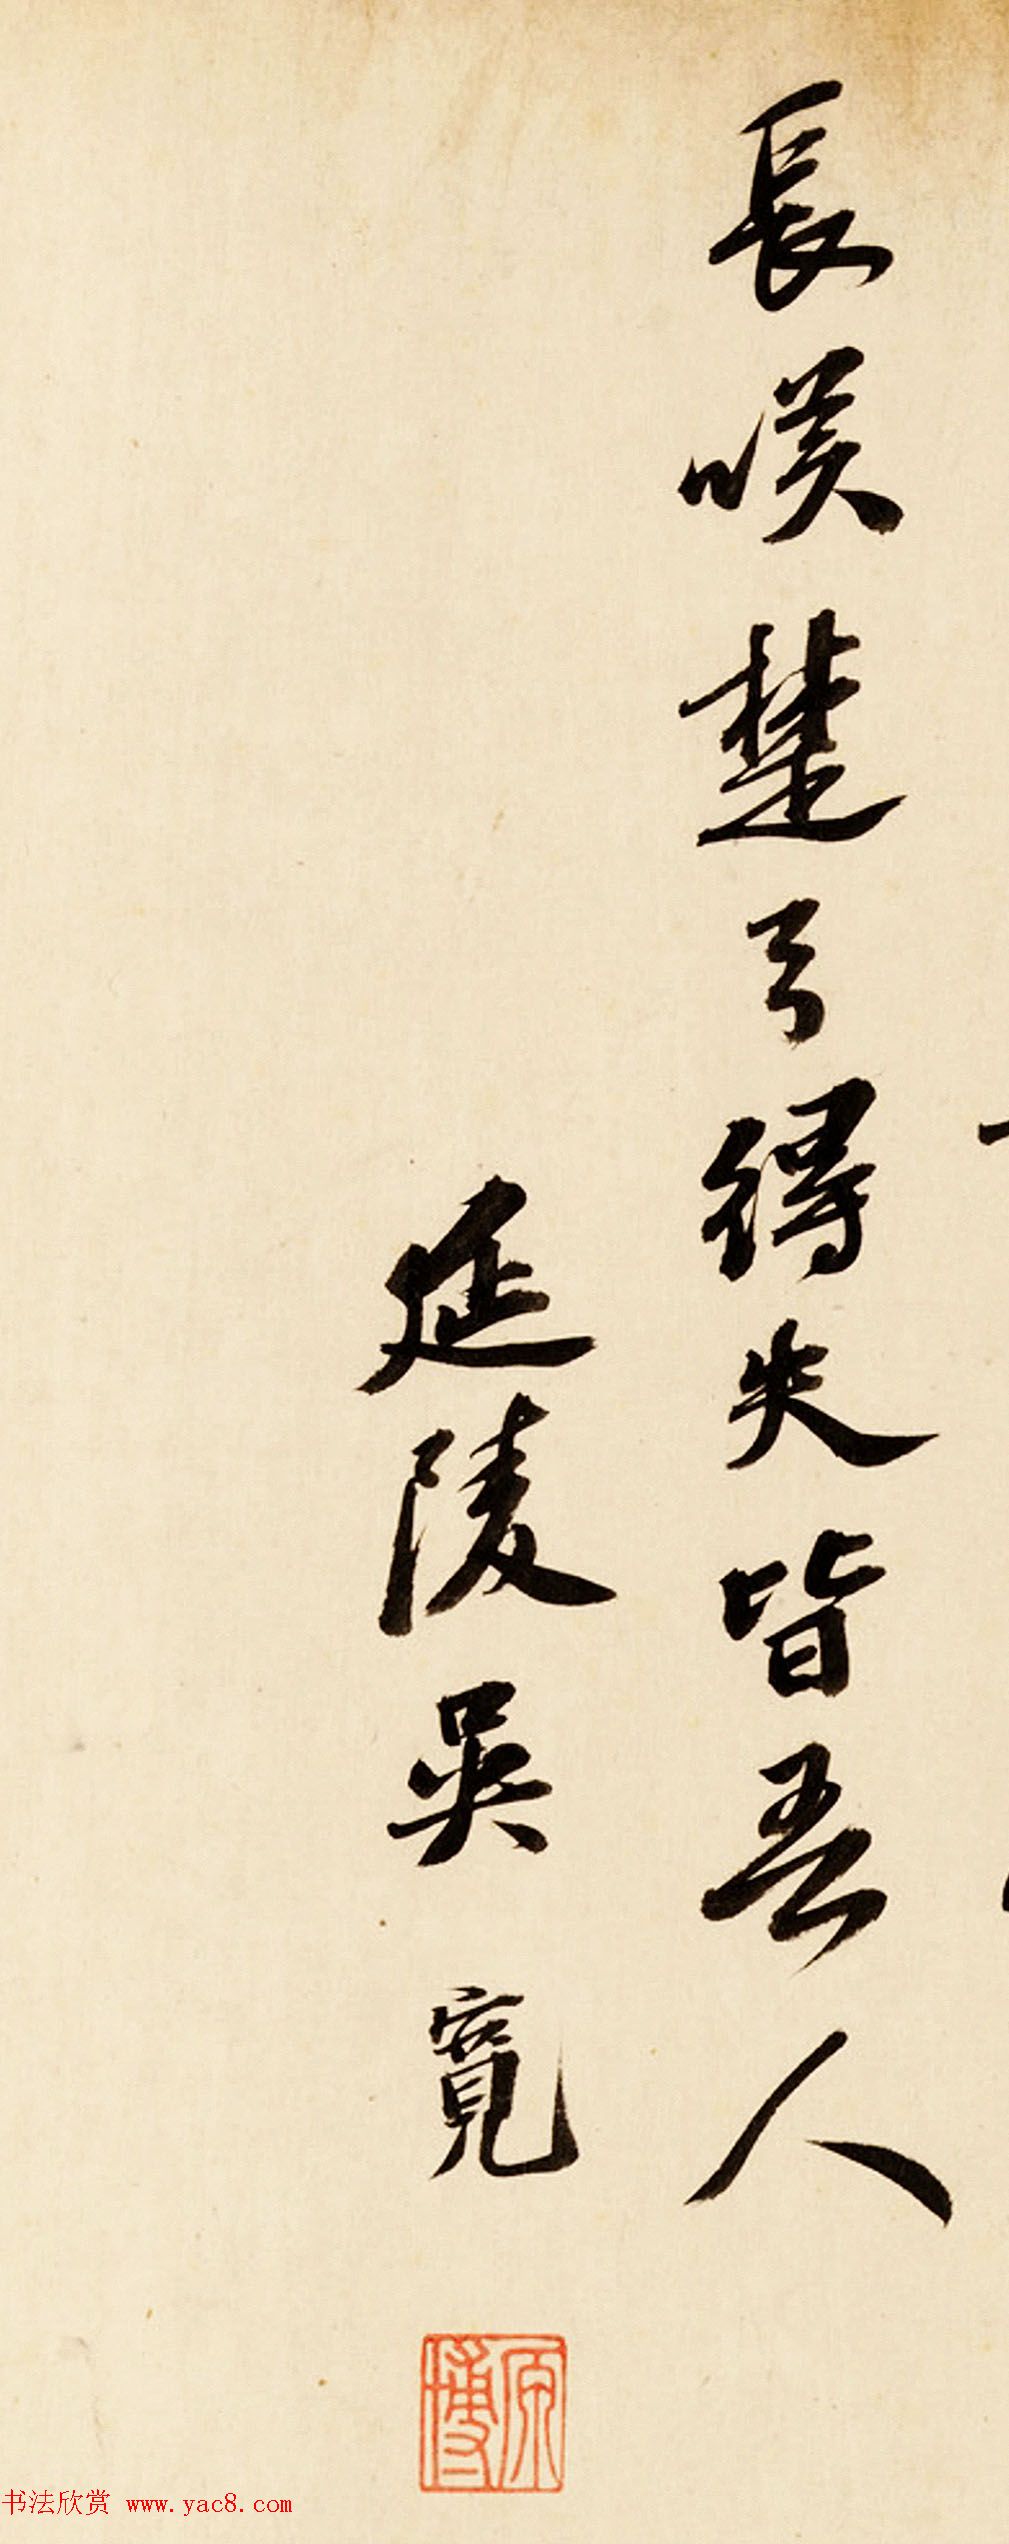 長嘆楚弓得失皆吾人
延陵吴寛
原博
书法欣赏 www.yac8.com